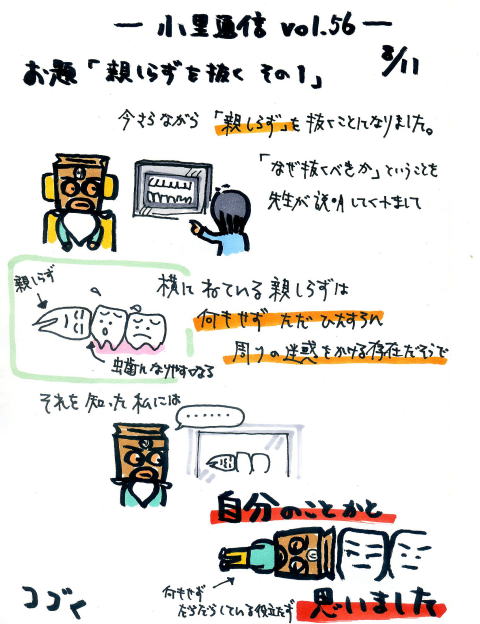 小里通信 vol.56
8/11
お題「親しらずを抜く その1」
今さらながら「親しらず」を抜くことになりました。
「なぜ抜くべきか」ということを
先生が説明してくれまして
親しらず
横にねている親しらずは
何もせずただひたすらに
周りの迷惑をかける存在だそうで
虫歯になりやすくなる
それを知った私には
......
自分のことかと
思いました
何もせず
だらだらしている役立たず
コづく